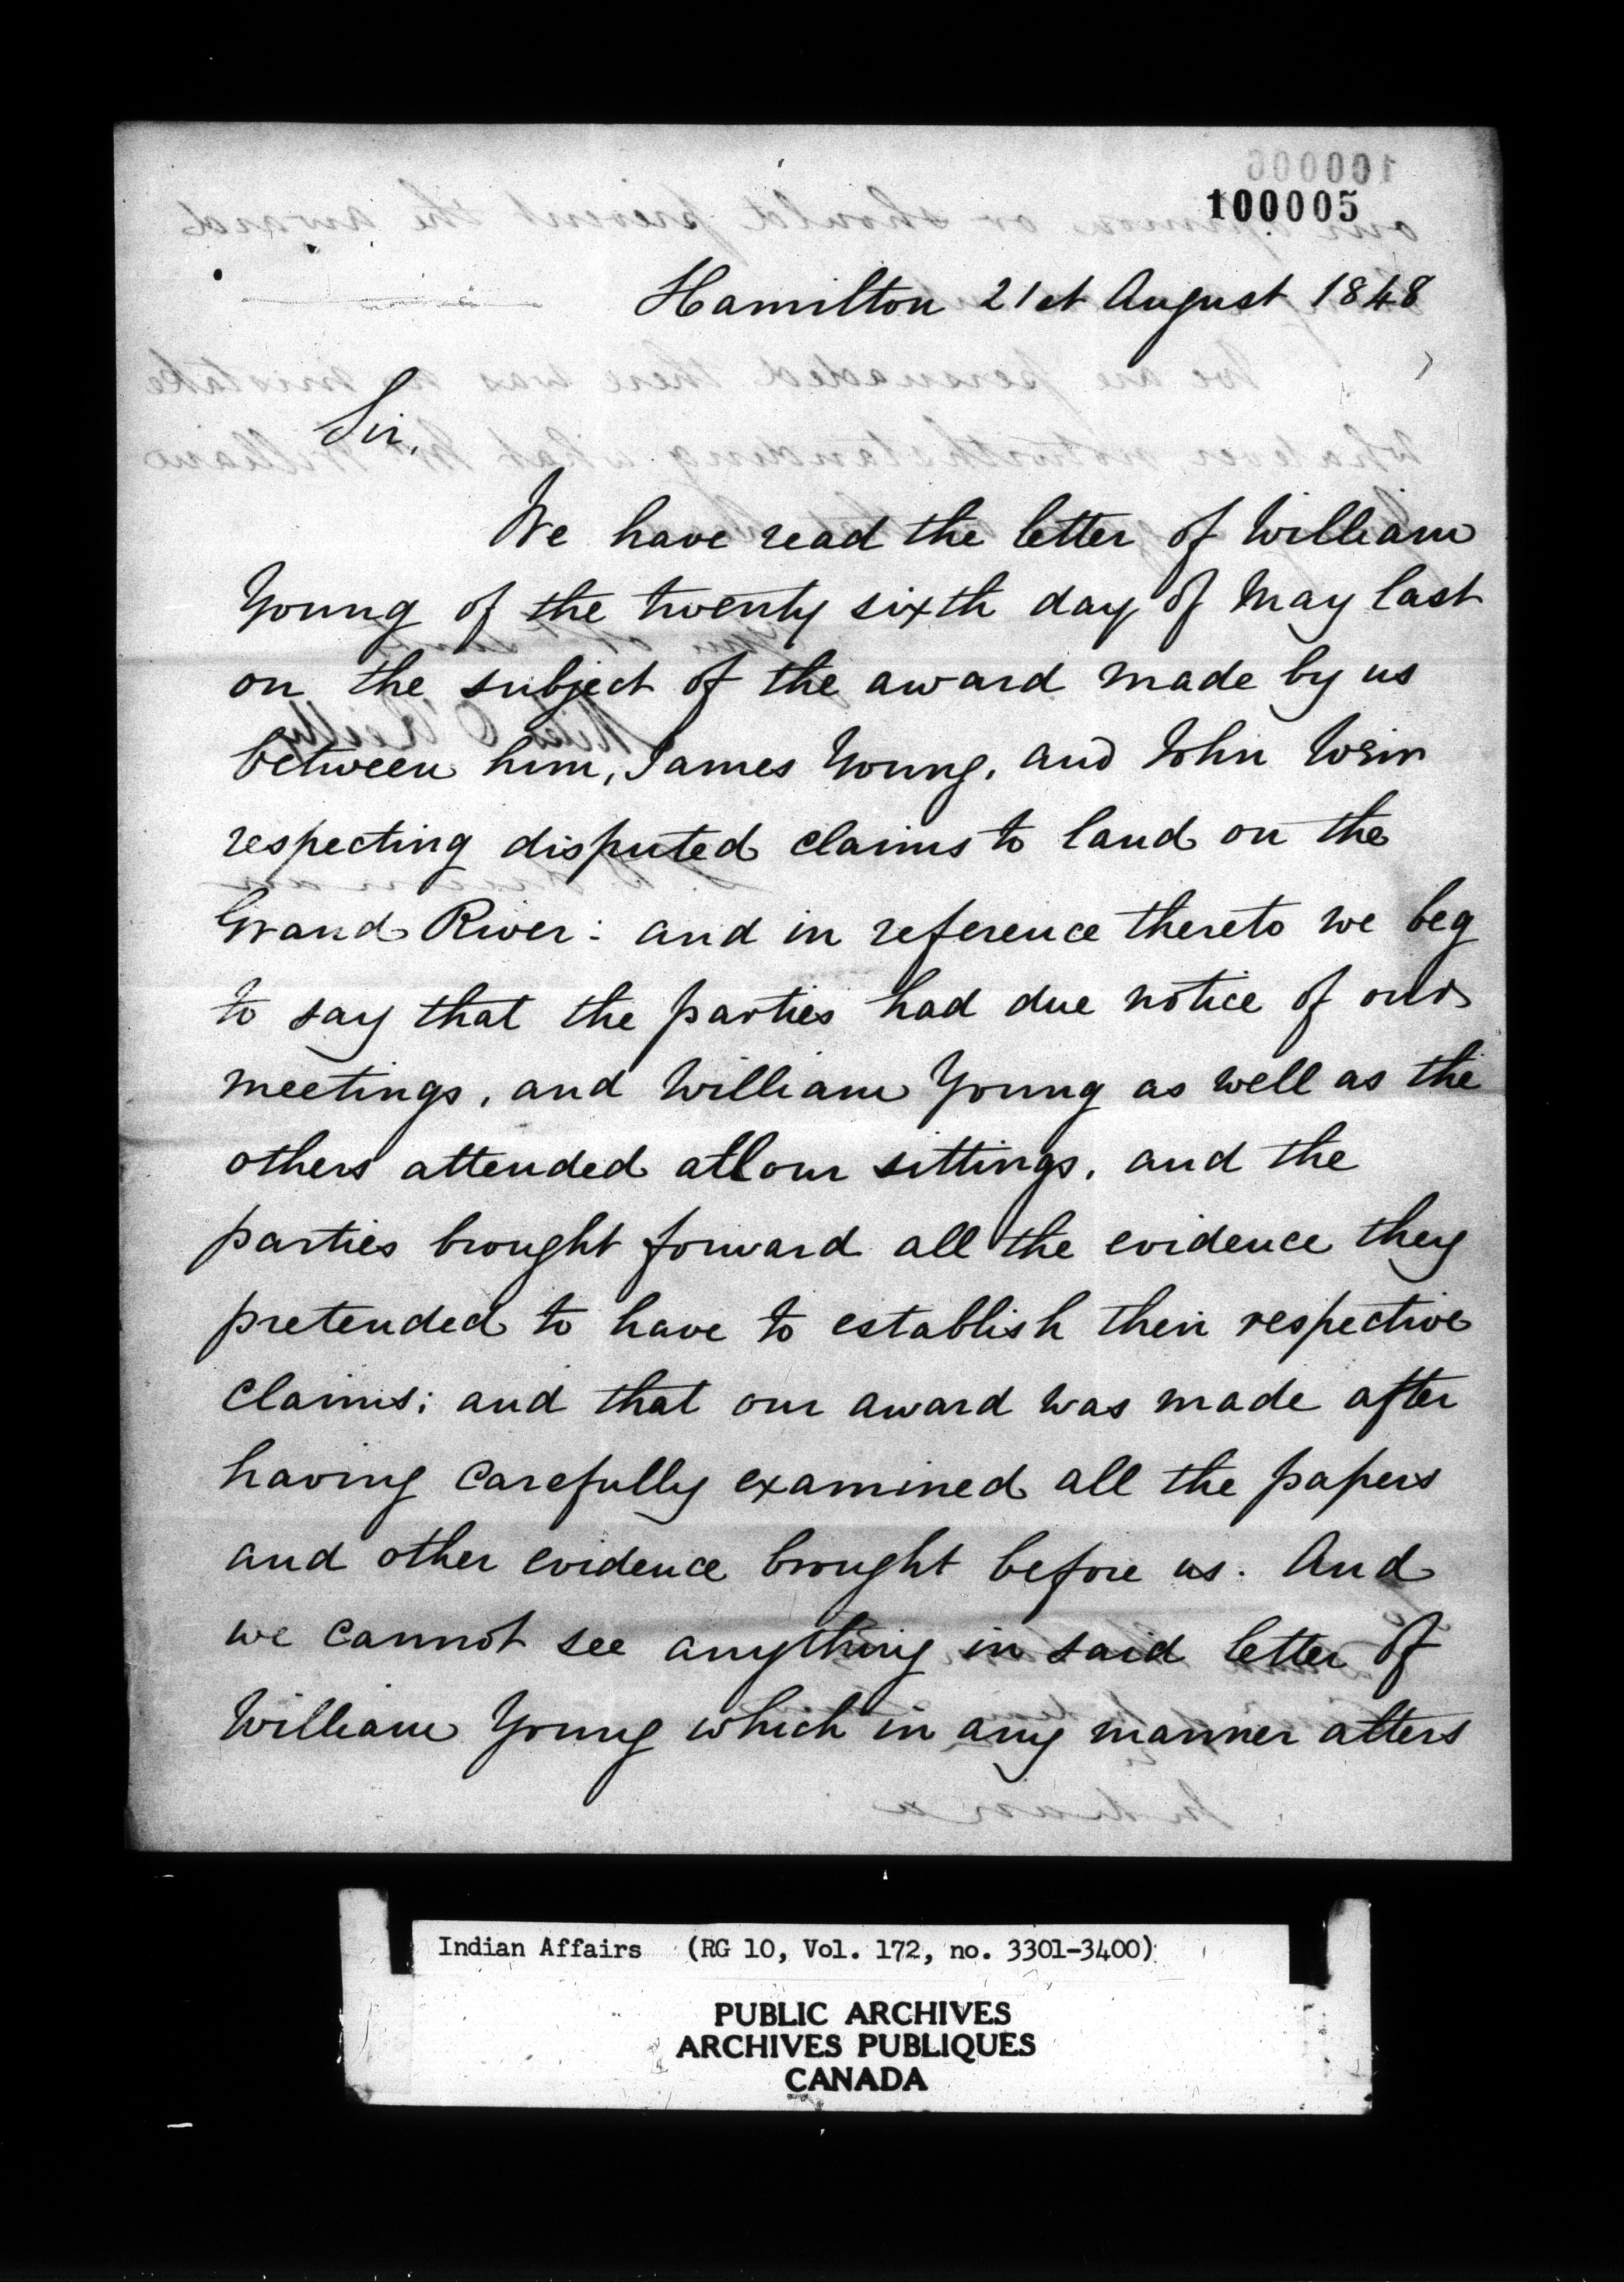 100005
Hamilton 21st August 1848
Sir,
We have read the letter of William
Young of the twenty sixth day of May last
on the subject of the award made by us
between him, James Young, and John Weir
respecting disputed claims to land on the
Grand River: and in reference thereto we beg
to say that the parties had due notice of our
meetings, and William Young as well as the
others attended all our sittings, and the
parties brought forward all the evidence they
pretended to have to establish their respective
claims; and that our award was made after
having carefully examined all the papers
and other evidence brought before us. And
we cannot see anything in said letter of
William Young which in any manner alters
Indian Affairs (RG 10, Vol. 172, no. 3301-3400)
PUBLIC ARCHIVES
ARCHIVES PUBLIQUES
CANADA